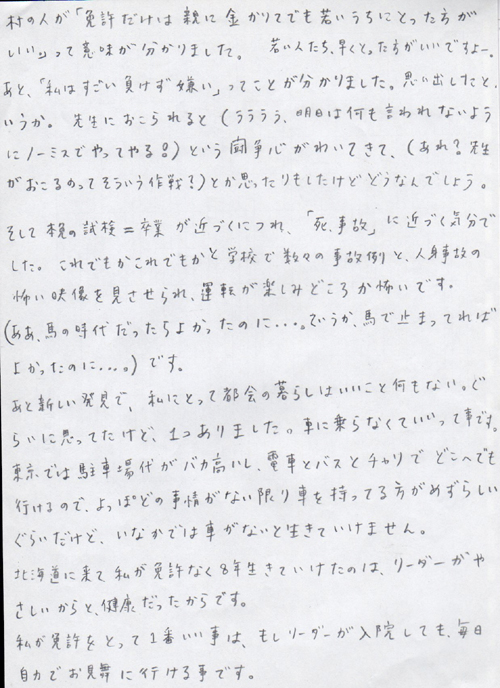 村の人が「免許だけは親に金かりてでも若いうちにとった方が
いい」って意味が分かりました。 若い人たち、早くとった方がいいですよー。
あと、「私はすごい負けず嫌い」ってことが分かりました。思い出したと
いうか。先生におこられると(うううう、明日は何も言われないよう
にノーミスでやってやる!!)という闘争心がわいてきて、(あれ?先生
がおこるのってそういう作戦?)とか思ったりもしたけどどうなんでしょう。
そして本免の試検=卒業が近づくにつれ、「死、事故」に近づく気分で
した。これでもかこれでもかと学校で数々の事故例と、人身事故の
怖い映像を見させられ、運転が楽しみどころか怖いです。
(ああ、馬の時代だったらよかったのに・・・。ていうか、馬で止まってれば
よかったのに・・・。)です。
あと新しい発見で、私にとって都会の暮らしはいいこと何もない。ぐ
らいに思ってたけど、1つありました。車に乗らなくていいって事です。
東京では駐車場代がバカ高いし、電車とバスとチャリでどこへでも
行けるので、よっぽどの事情がない限り車を持ってる方がめずらしい
ぐらいだけど、いなかでは車がないと生きていけません。
北海道に来て私が免許なく8年生きていけたのは、リーダーがや
さしいからと、健康だったからです。
私が免許をとって1番いい事は、もしリーダーが入院しても、毎日
自力でお見舞に行ける事です。